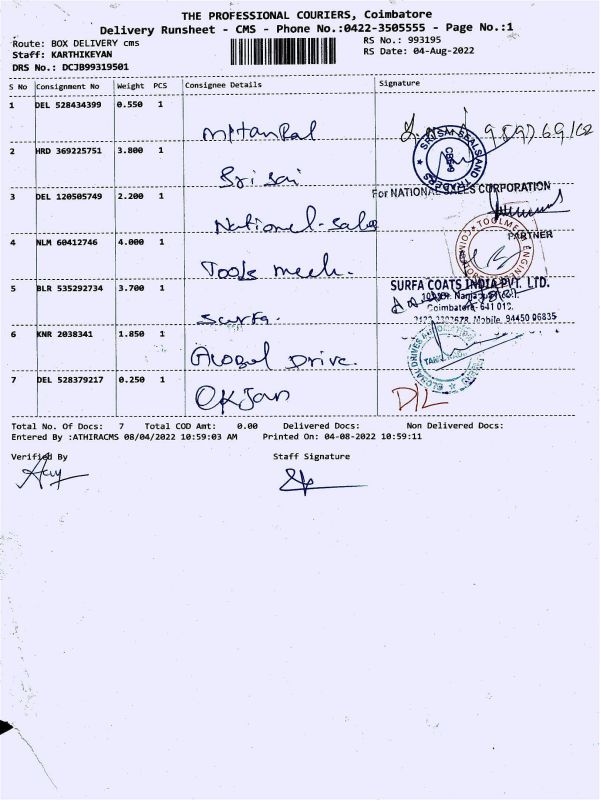 THE PROFESSIONAL COURIERS, Coimbatore
Delivery Runsheet - CMS - Phone No.:0422-3505555 - Page No.:1
Route: BOX DELIVERY cms
RS No.: 993195
Staff: KARTHIKEYAN
RS Date: 04-Aug-2022
DRS No.: DCJB99319501
S No Consignment No Weight PCS Consignee Details Signature
1 DEL 528434399 0.550 1
2 HRD 369225751 3.800 1 Sri Sai
3 DEL 120505749 2.200 1 National-Sales
For NATIONAL SALES CORPORATION
PARTNER
4 NLM 60412746 4.000 1 Tools mech.
5 BLR 535292734 3.700 1 Surfa.
SURFA COATS INDIA PVT. LTD.
Coimbatore- 641 012.
Mobile. 94450 06835
6 KNR 2038341 1.850 1 Global Drive.
7 DEL 528379217 0.250 1 D/L
Total No. Of Docs: 7 Total COD Amt: 0.00 Delivered Docs: Non Delivered Docs:
Entered By :ATHIRACMS 08/04/2022 10:59:03 AM Printed On: 04-08-2022 10:59:11
Verified By Staff Signature